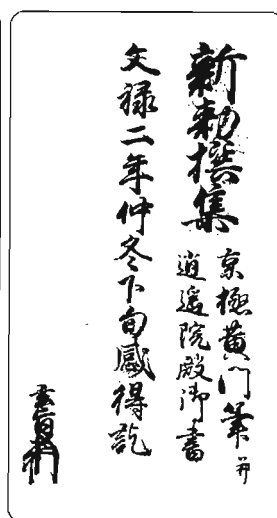 新勅撰集
京極黄門筆并
逍遥院殿御書
文禄二年仲冬下旬感得訖
玄旨